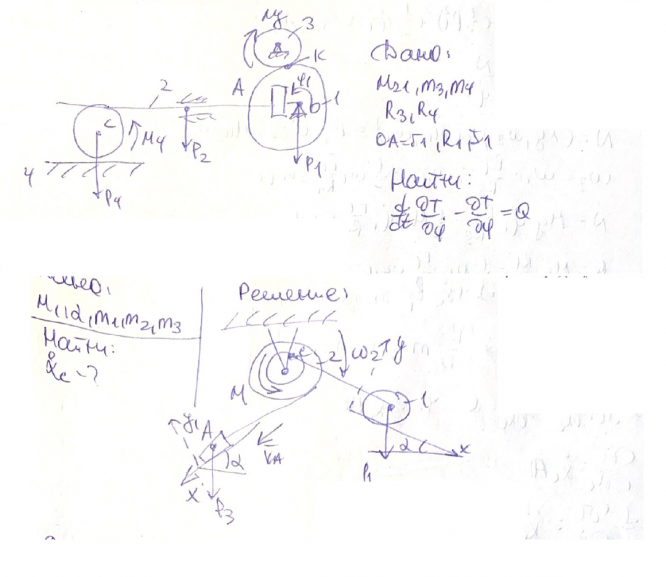 My
3
K
A
φ1
O
1
2
C
M4
P2
P1
4
P4
Дано:
M21, m3, m4
R3, R4
OA=r1, R1, J1
Найти:
d/dt ∂T/∂φ̇ - ∂T/∂φ = Q
M, α, m1, m2, m3
Найти:
ẍc - ?
Решение:
2
ω2
y
M
1
y1
A
VA
α
x
P3
P1
α
x